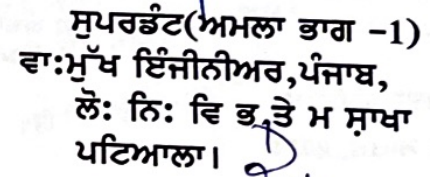 ਸੁਪਰਡੰਟ(ਅਮਲਾ ਭਾਗ -1)
ਵਾ:ਮੁੱਖ ਇੰਜੀਨੀਅਰ,ਪੰਜਾਬ,
ਲੋ: ਨਿ: ਵਿ ਭ ਤੇ ਮ ਸ਼ਾਖਾ
ਪਟਿਆਲਾ।